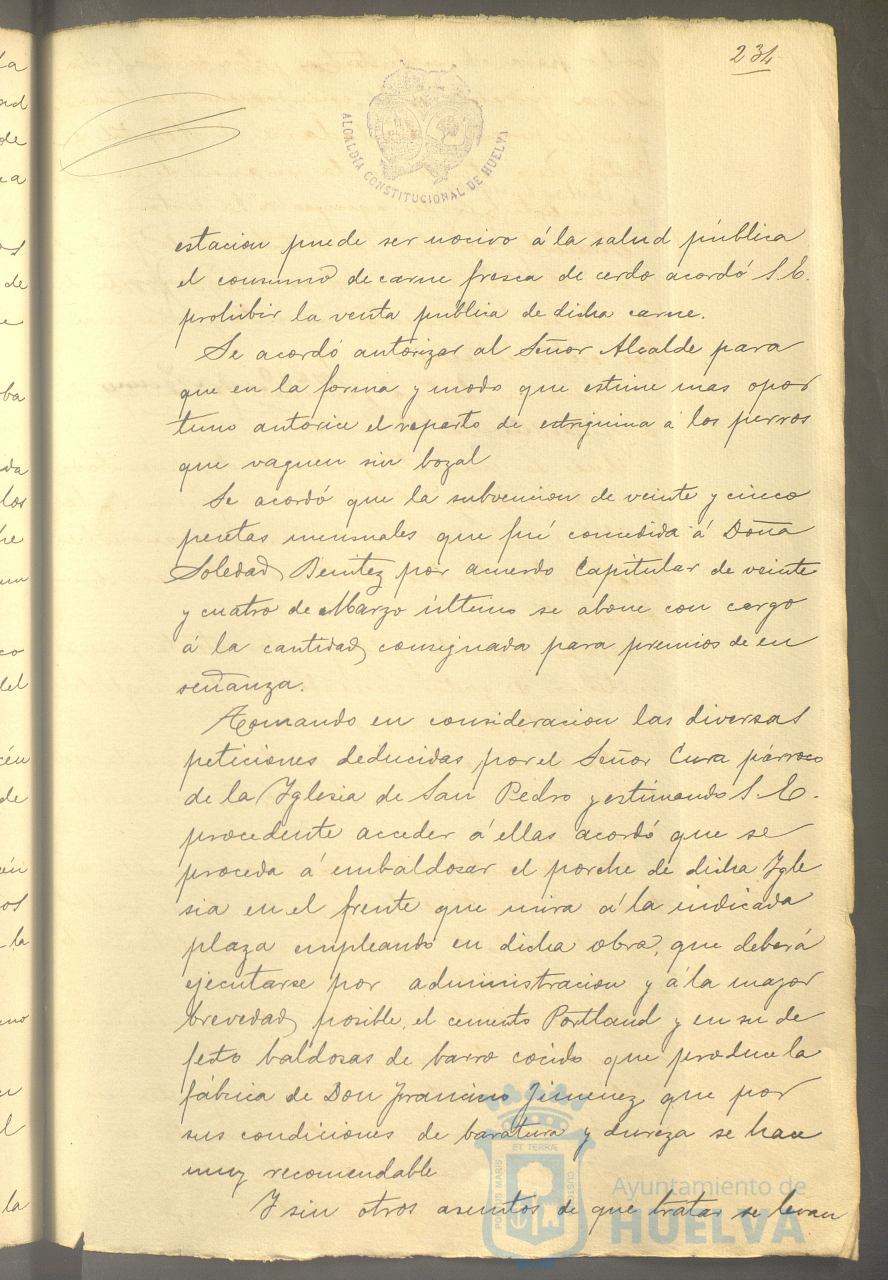 234
ALCALDIA CONSTITUCIONAL DE HUELVA
estacion puede ser nocivo á la salud pública
el consumo de carne fresca de cerdo acordó S. E.
prohibir la venta pública de dicha carne.
Se acordó autorizar al Señor Alcalde para
que en la forma y modo que estime mas opor
tuno autorice el reparto de estrignina á los perros
que vaguen sin bozal
Se acordó que la subvencion de veinte y cinco
pesetas mensuales que fué concedida á Doña
Soledad Benitez por acuerdo Capitular de veinte
y cuatro de Marzo último se abone con cargo
á la cantidad consignada para premios de en
señanza.
Tomando en consideracion las diversas
peticiones deducidas por el Señor Cura párroco
de la Yglesia de San Pedro y estimando S. E.
procedente acceder á ellas acordó que se
proceda á embaldosar el porche de dicha Ygle
sia en el frente que mira á la indicada
plaza empleando en dicha obra, que deberá
ejecutarse por administracion y á la mayor
brevedad posible, el cemento Portland y en su de
fecto baldosas de barro cocido que produce la
fábrica de Don Francisco Jimenez que por
sus condiciones de baratura y dureza se hace
muy recomendable
Y sin otros asuntos de que tratar se levan
PORTUS MARIS ET TERRÆ CUSTODIA
Ayuntamiento de
HUELVA